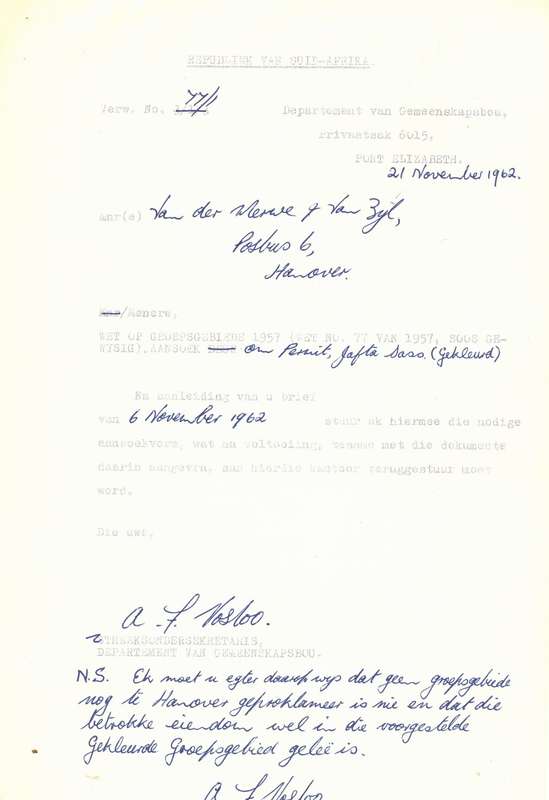 REPUBLIEK VAN SUID-AFRIKA.
Verw. No. 77/1
Departement van Gemeenskapsbou,
Privaatsak 6015,
PORT ELIZABETH.
21 November 1962.
Mnr(e) Van der Merwe & Van Zyl,
Posbus 6,
Hanover.
Mnr/Menere,
WET OP GROEPSGEBIEDE 1957 (WET NO. 77 VAN 1957, SOOS GE-
WYSIG). AANSOEK om Permit, Jafta Dass. (Gekleurd)
Na aanleiding van u brief
van 6 November 1962 stuur ek hiermee die nodige
aansoekvorm, wat na voltooiing, tesame met die dokumente
daarin aangevra, aan hierdie kantoor teruggestuur moet
word.
Die uwe,
A. J. Vosloo.
STREEKSONDERSEKRETARIS,
DEPARTEMENT VAN GEMEENSKAPSBOU.
N.S. Ek moet u egter daarop wys dat geen groepsgebiede
nog te Hanover geproklameer is nie en dat die
betrokke eiendom wel in die voorgestelde
Gekleurde Groepsgebied geleë is.
A J Vosloo